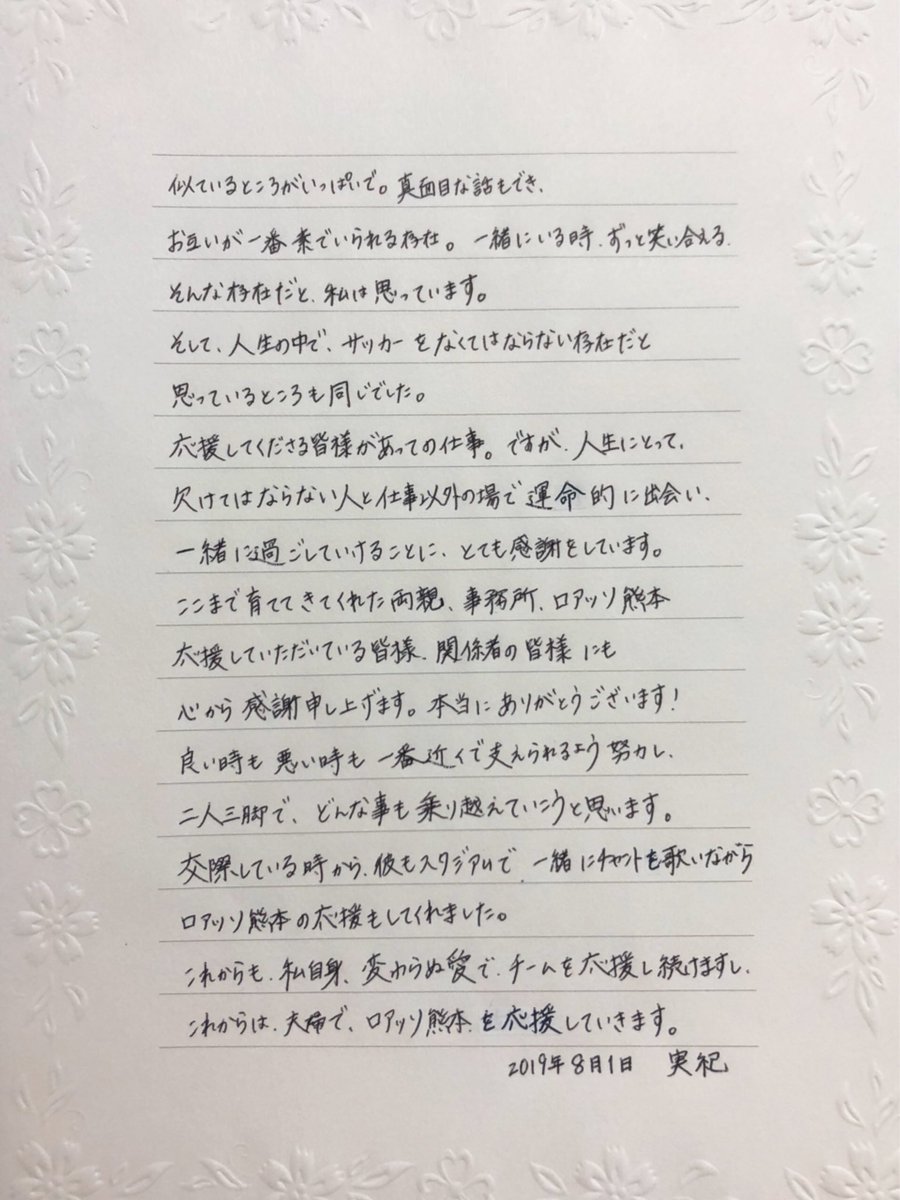 似ているところがいっぱいで。真面目な話もでき、
お互いが一番素でいられる存在。一緒にいる時、ずっと笑い合える、
そんな存在だと、私は思っています。
そして、人生の中で、サッカーをなくてはならない存在だと
思っているところも同じでした。
応援してくださる皆様があっての仕事。ですが、人生にとって、
欠けてはならない人と仕事以外の場で運命的に出会い、
一緒に過ごしていけることに、とても感謝をしています。
ここまで育ててきてくれた両親、事務所、ロアッソ熊本
応援していただいている皆様、関係者の皆様にも
心から感謝申し上げます。本当にありがとうございます!
良い時も悪い時も一番近くで支えられるよう努力し、
二人三脚で、どんな事も乗り越えていこうと思います。
交際している時から、彼もスタジアムで、一緒にチャントを歌いながら
ロアッソ熊本の応援もしてくれました。
これからも、私自身、変わらぬ愛で、チームを応援し続けますし、
これからは、夫婦で、ロアッソ熊本を応援していきます。
2019年8月1日 実紀